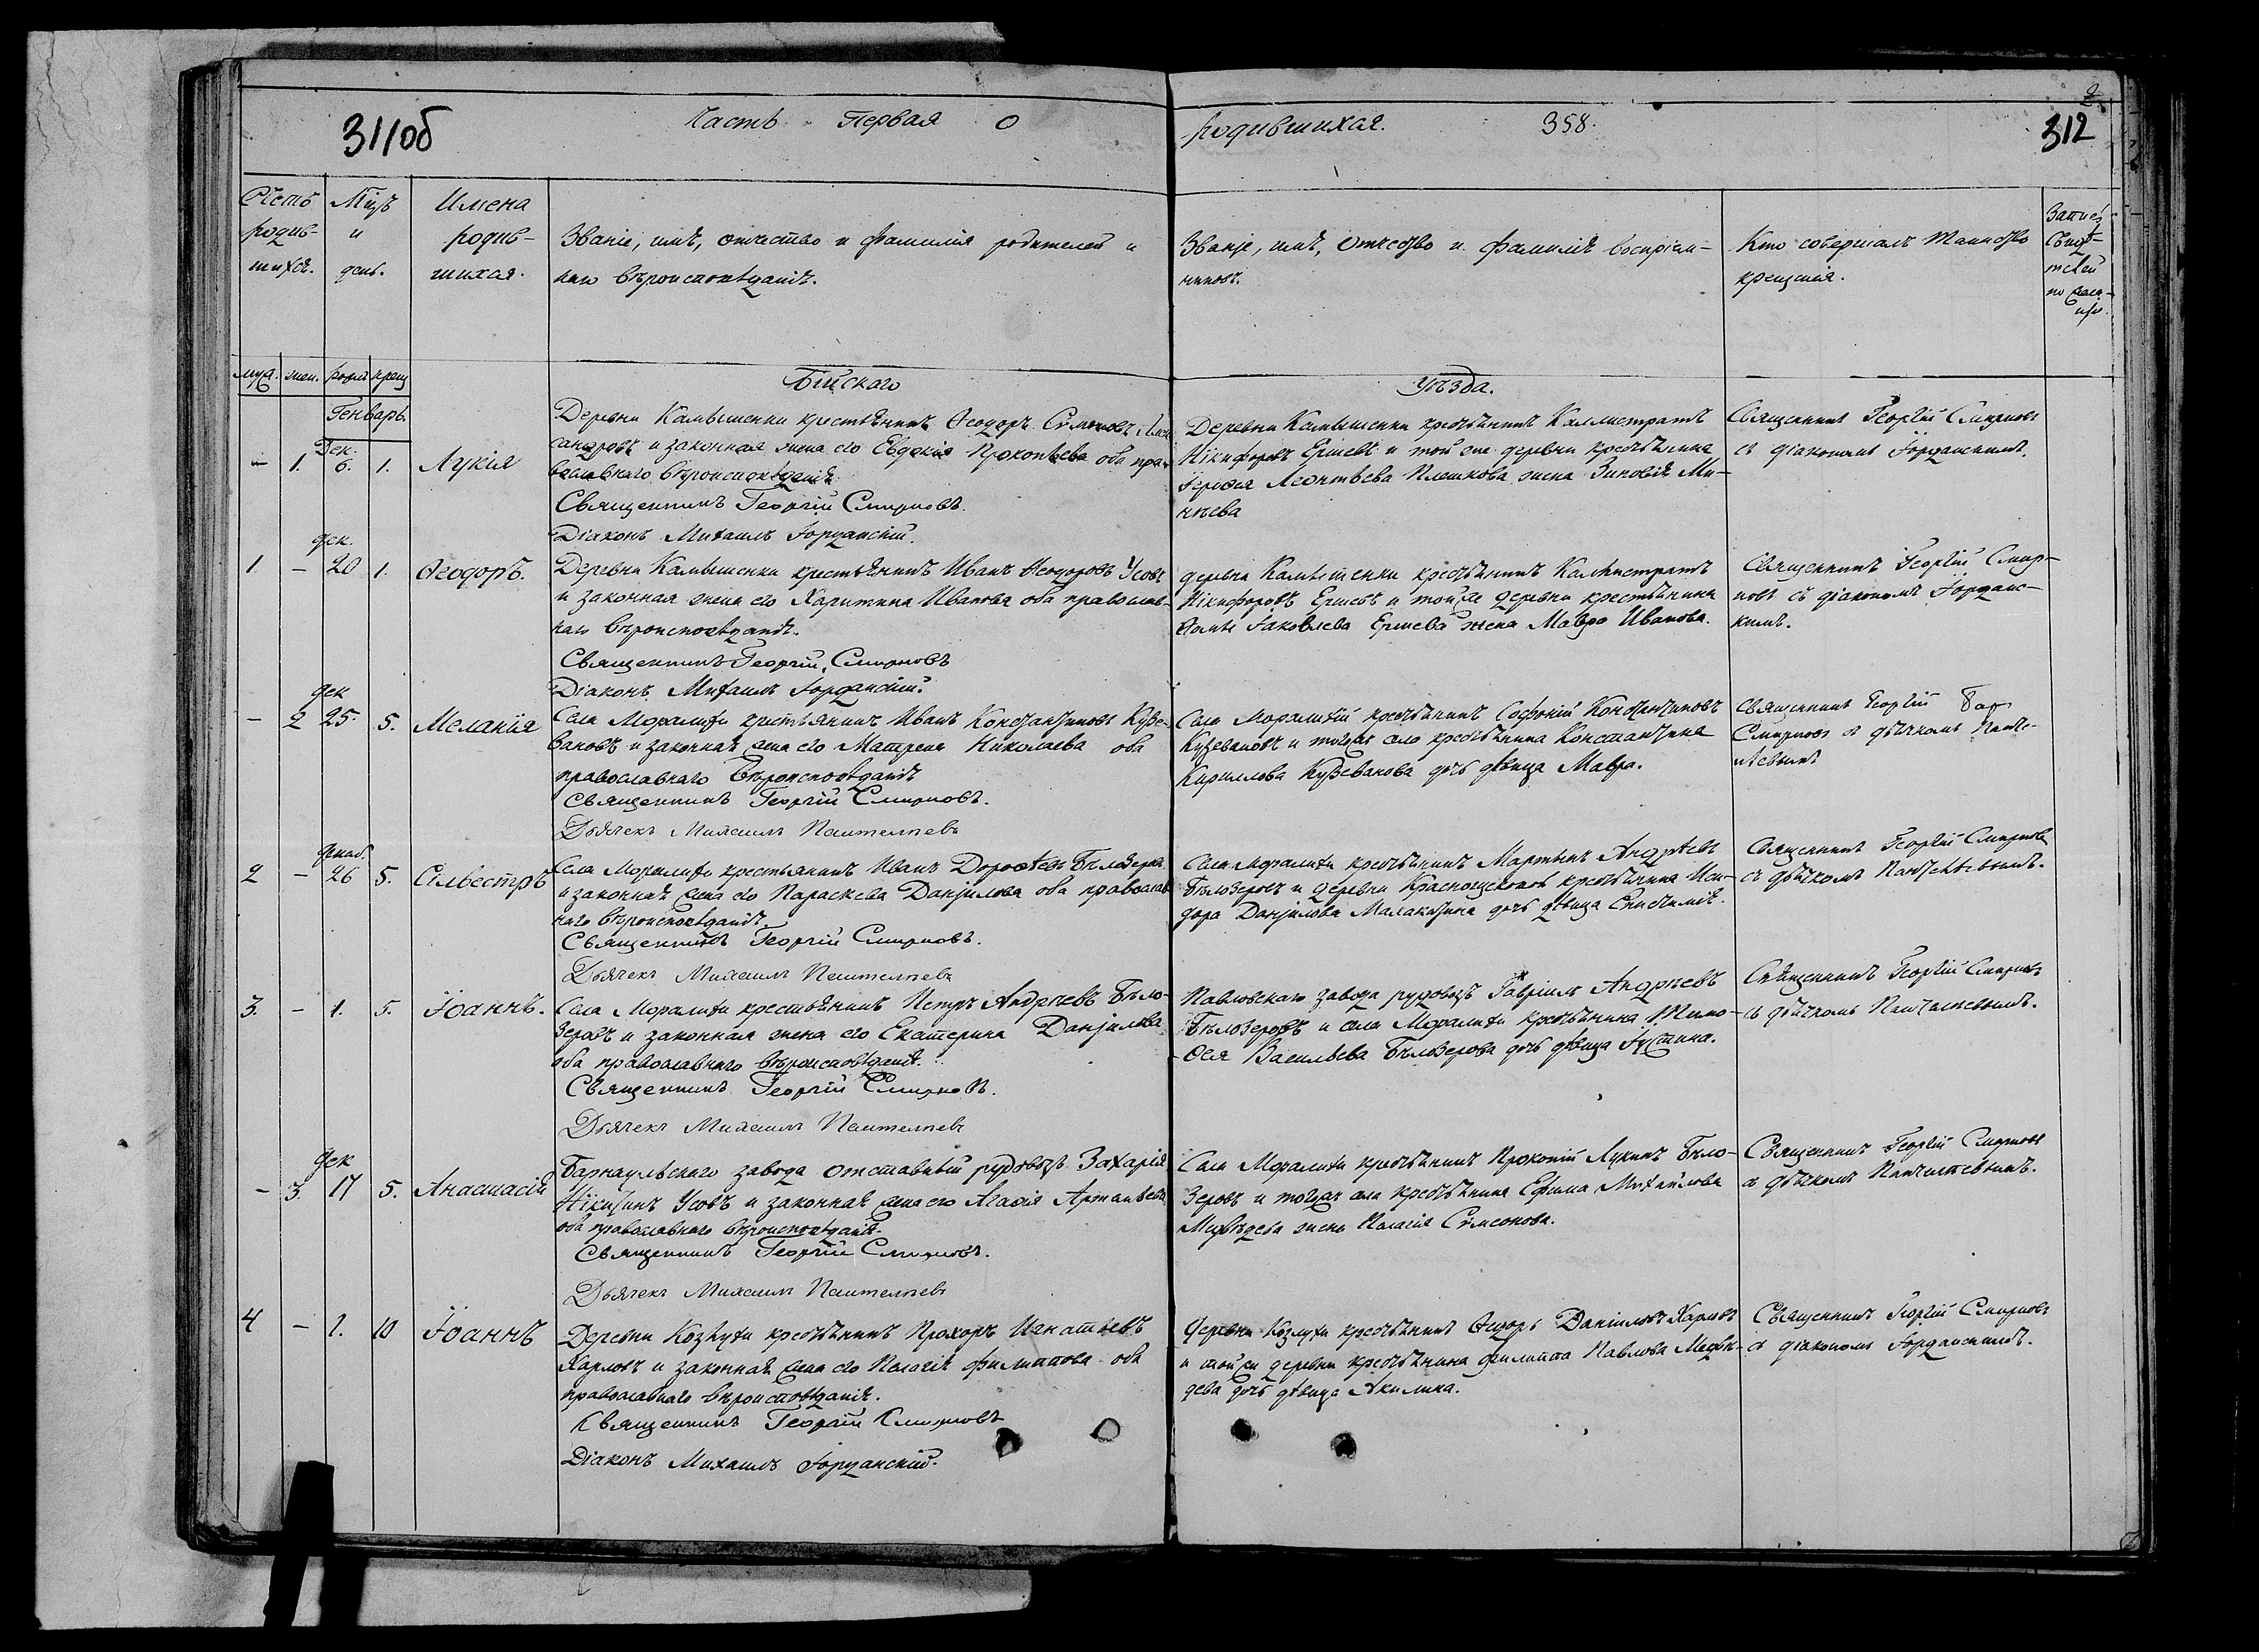 311об
Часть Первая О
родившихся.
358.
2
312
Счетъ родив-шихся.
Мцъ и день.
Имена родив-шихся.
Званіе, имѣ, отчество и фамилія родителей и
како вѣроисповѣданіѧ.
Званіе, имѣ, отчество и фамиліѧ воспріем-
никовъ.
Кто совершалъ таинство
крещенія.
муж. жен. родил крещ
Бійскаго
Уѣзда.
Генварь.
Дек.
– 1. 6. 1. Лукія
Деревни Камышенки крестьѧнинъ Ѳеодоръ Сѵмеоновъ
сандровъ и законная жена его Евдокія Прокопьева оба пра-
вославнаго вѣроисповѣданіѧ
Священникъ Георгій Смирновъ.
Діаконъ Михаилъ Іорданскій.
Деревни Камышенки крестьѧнинъ Каллистратъ
Никифоровъ Ершевъ и той же деревни крестьѧнина
Леонтьева Плешкова жена Зиновіѧ Ми-
нѣева
Священникъ Георгій Смирновъ
съ діакономъ Іорданскимъ.
дек.
1 – 20 1. Ѳеодоръ.
Деревни Камышенки крестьѧнинъ Иванъ Ѳеодоровъ Усовъ
и законная жена его Харитина Иванова оба православ-
наго вѣроисповѣданіѧ.
Священникъ Георгій Смирновъ
Діаконъ Михаилъ Іорданскій.
деревни Камышенки крестьѧнинъ Каллистратъ
Никифоровъ Ершевъ и той же деревни крестьѧнина
Ѳомы Іаковлева Ершева жена Мавра Иванова.
Священникъ Георгій Смир-
новъ съ діакономъ Іорданс-
кимъ.
дек
– 2 25. 5. Меланія
Села Моралихи крестьянинъ Иванъ Константиновъ Кузе-
вановъ и законнаѧ жена его Матрена Николаева оба
православнаго вѣроисповѣданіѧ
Священникъ Георгій Смирновъ.
Дьячекъ Михаилъ Пантелеевъ
Села Моралихи крестьѧнинъ Софроній Константиновъ
Кузевановъ и тогоже села крестьѧнина Константина
Кириллова Кузеванова дочь дѣвица Мавра.
Священникъ Георгій
Смирновъ съ дьячкомъ Панте-
лѣевымъ
декаб.
2 – 26 5. Сілвестръ
Села Моралихи крестьянинъ Иванъ Дороѳѣевъ Бѣлозеров
и законнаѧ жена его Параскева Даніилова оба православ
наго вѣроисповѣданіѧ.
Священникъ Георгій Смирновъ.
Дьячекъ Михаилъ Пантелеевъ
Села Моралихи крестьѧнинъ Мартынъ Андрѣевъ
Бѣлозеровъ и деревни Краснощековой крестьѧнина Иси-
дора Даніилова Малахина дочь дѣвица
Священникъ Георгій Смирновъ
съ дьячкомъ Пантелѣевымъ.
3. – 1. 5. Іоаннъ.
Села Моралихи крестьѧнинъ Петръ Андреевъ Бѣло-
зеровъ и законная жена его Екатерина Даніилова
оба православнаго вѣроисповѣданіѧ.
Священникъ Георгій Смирновъ.
Дьячекъ Михаилъ Пантелеевъ
Павловскаго завода рудовозъ Гавріилъ Андреевъ
Бѣлозеровъ и села Моралихи крестьѧнина Тимо-
ѳея Васильева Бѣлозерова дочь дѣвица Іустина.
Священникъ Георгій Смирновъ
съ дьячкомъ Пантелѣевымъ.
дек
– 3. 17 5. Анастасіѧ
Барнаульскаго завода отставный рудовозъ Захарія
Никитинъ Усовъ и законнаѧ жена его Агаѳія
оба православнаго вѣроисповѣданіѧ.
Священникъ Георгій Смирновъ.
Дьячекъ Михаилъ Пантелеевъ
Села Моралихи крестьѧнинъ Прокопій Лукинъ Бѣло-
зеровъ и тогоже села крестьѧнина Ефима Михаилова
Медвѣдева жена Пелагія Сѵмеонова.
Священникъ Георгій Смирновъ
съ дьячкомъ Пантелѣевымъ.
4 – 1. 10 Іоаннъ
Деревни Козлухи крестьѧнинъ Прохоръ Игнатьевъ
Харловъ и законнаѧ жена его Пелагіѧ Филиппова оба
православнаго вѣроисповѣданіѧ.
Священникъ Георгій Смирновъ
Діаконъ Михаилъ Іорданскій.
Деревни Козлухи крестьѧнинъ Ѳедоръ Даніиловъ Харловъ
и той же деревни крестьѧнина Филиппа Павлова Медвѣ-
дева дочь дѣвица Акилина.
Священникъ Георгій Смирновъ
съ діакономъ Іорданскимъ.